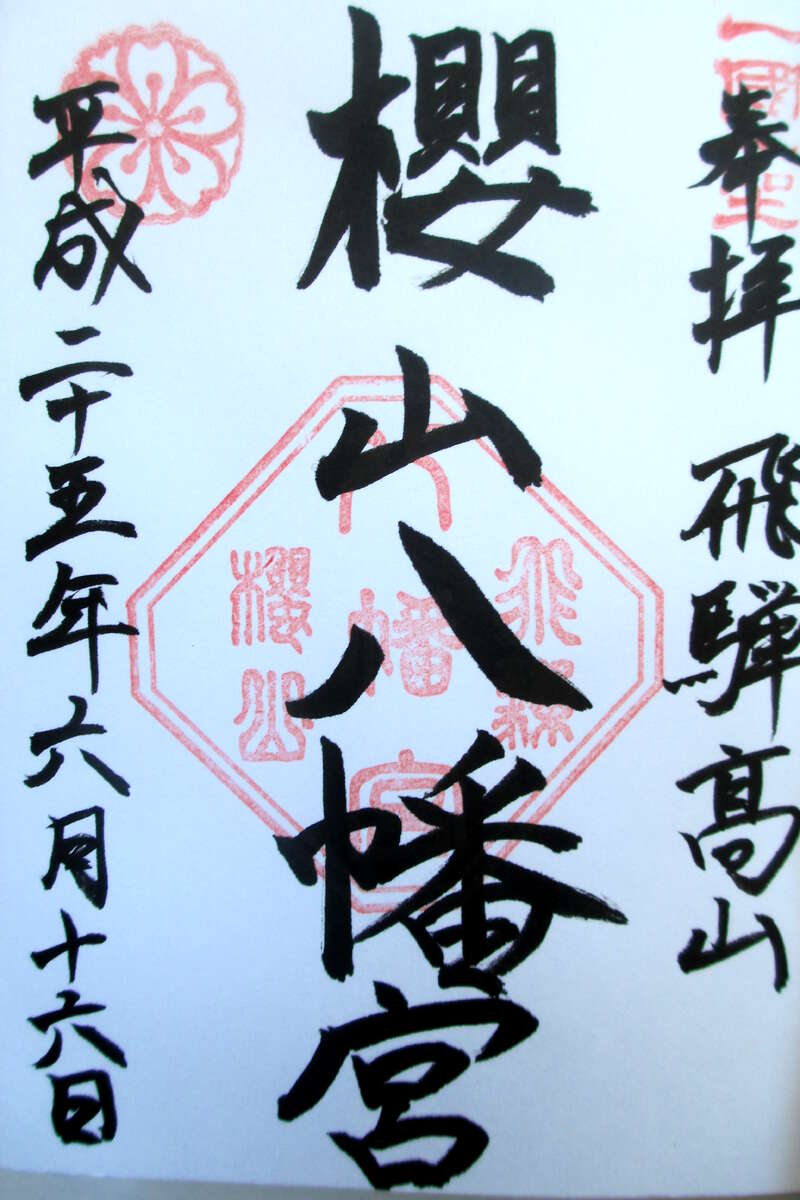 奉拝 飛騨髙山
櫻山八幡宮
平成二十五年六月十六日
飛騨
八幡宮
櫻山